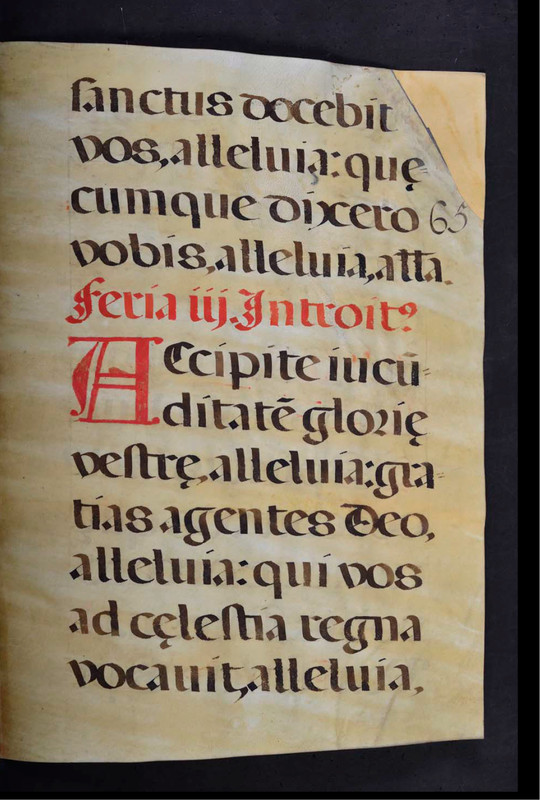 sanctus docebit
vos, alleluia: quę-
cumque dixero 65
vobis, alleluia, alła.
Feria iij. Introit?
Accipite iucū-
ditatē glorię
vestrę, alleluia: gra-
tias agentes Deo,
alleluia: qui vos
ad cęlestia regna
vocavit, alleluia,